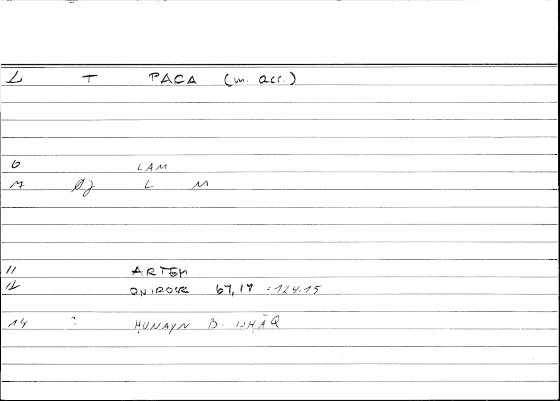 L T PACA (m. acc.)
6 LAM
7 Aj L M
11 ARTEM
12 ONIROCR 67,19 =124.15
14 ? ḤUNAYN B. ISḤĀQ